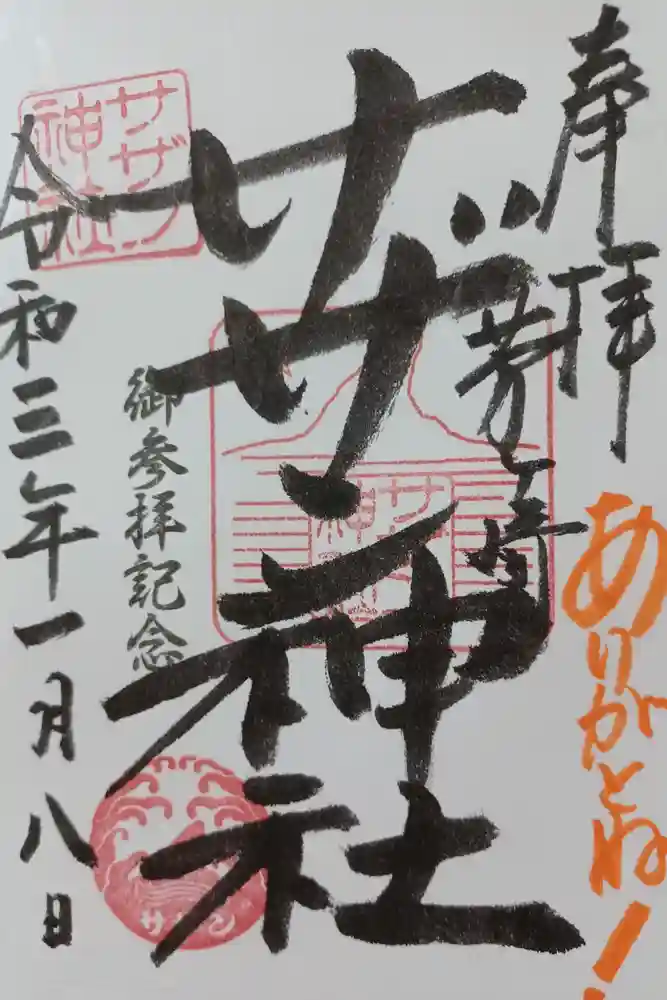 奉拝
茅ヶ崎
ありがとね!
サザン神社
サザン
神社
サザン
神社
サザン
御参拝記念
令和三年一月八日